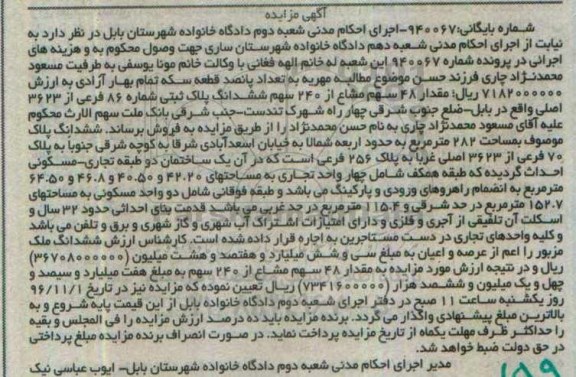 آگهی مزایده
شماره بایگانی:۹۴۰۰۶۷-اجرای احکام مدنی شعبه دوم دادگاه خانواده شهرستان بابل در نظر دارد به
نیابت از اجرای احکام مدنی شعبه دهم دادگاه خانواده شهرستان ساری جهت وصول محکوم به و هزینه های
اجرائی در پرونده شماره ۹۴۰۰۶۷ این شعبه له خانم الهه فغانی با وکالت خانم مونا یوسفی به طرفیت مسعود
محمدنژاد چاری فرزند حسن موضوع مطالبه مهریه به تعداد پانصد قطعه سکه تمام بهار آزادی به ارزش
۷۱۸۲۰۰۰۰۰۰ ریال: مقدار ۴۸ سهم مشاع از ۲۴۰ سهم ششدانگ پلاک ثبتی شماره ۸۶ فرعی از ۳۶۲۳
اصلی واقع در بابل-ضلع جنوب شرقی چهار راه شهرک تندست-جنب شرقی بانک ملت سهم الارث محکوم
علیه آقای مسعود محمدنژاد چاری به نام حسن محمدنژاد را از طریق مزایده به فروش برساند. ششدانگ پلاک
موصوف بمساحت ۲۸۲ مترمربع به حدود اربعه شمالا به خیابان اسعدآبادی شرقا به کوچه شرقی جنوبا به پلاک
۷۰ فرعی از ۳۶۲۳ اصلی غربا به پلاک ۲۵۶ فرعی است که در آن یک ساختمان دو طبقه تجاری-مسکونی
احداث گردیده که طبقه همکف شامل چهار واحد تجاری به مساحتهای ۴۲.۲۰ و ۴۰.۵۰ و ۴۶.۸ و ۶۴.۵۰
مترمربع به انضمام راهروهای ورودی و پارکینگ می باشد و طبقه فوقانی شامل دو واحد مسکونی به مساحتهای
۱۵۲.۷ مترمربع در حد شرقی و ۱۱۵.۴ مترمربع در حد غربی می باشد قدمت بنای احداثی حدود ۳۲ سال و
اسکلت آن تلفیقی از آجری و فلزی و دارای امتیازات اشتراک آب شهری و گاز شهری و برق و تلفن می باشد
و کلیه واحدهای تجاری در دست مستاجرین به اجاره قرار داده شده است. کارشناس ارزش ششدانگ ملک
مزبور را اعم از عرصه و اعیان به مبلغ سی و شش میلیارد و هفتصد و هشت میلیون (۳۶۷۰۸۰۰۰۰۰۰)
ریال و در نتیجه ارزش مورد مزایده به مقدار ۴۸ سهم مشاع از ۲۴۰ سهم به مبلغ هفت میلیارد و سیصد و
چهل و یک میلیون و ششصد هزار (۷۳۴۱۶۰۰۰۰۰) ریال تعیین نموده که مزایده نیز در تاریخ ۹۶/۱۱/۱
روز یکشنبه ساعت ۱۱ صبح در دفتر اجرای شعبه دوم دادگاه خانواده بابل از این قیمت پایه شروع و به
بالاترین مبلغ پیشنهادی واگذار می گردد. برنده مزایده باید ده درصد ارزش مزایده را فی المجلس و بقیه
را حداکثر ظرف مهلت یکماه از تاریخ مزایده پرداخت نماید. در صورت انصراف برنده مزایده مبلغ پرداختی
در حق دولت ضبط خواهد شد.
مدیر اجرای احکام مدنی شعبه دوم دادگاه خانواده شهرستان بابل- ایوب عباسی نیک